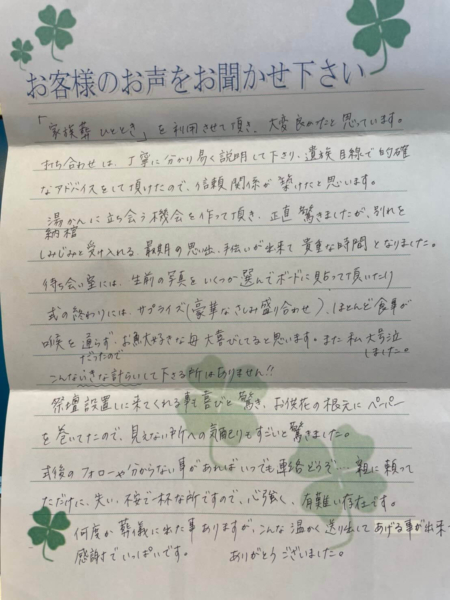 お客様のお声をお聞かせ下さい
「家族葬ひととき」を利用させて頂き、大変良かったと思っています。
打ち合わせは、丁寧に分かり易く説明して下さり、遺族目線で的確
なアドバイスをして頂けたので、信頼関係が築けたと思います。
湯かんに立ち会う機会を作って頂き、正直驚きましたが、別れを
納棺
しみじみと受け入れる、最期の思い出、手伝いが出来て貴重な時間となりました。
待ち合い室には、生前の写真をいくつか選んでボードに貼って頂いたり
式の終わりには、サプライズ(豪華なさしみ盛り合わせ)、ほとんど食事が
喉を通らず、お魚大好きな母大喜びしてると思います。また私大号泣
だったので
しました。
こんないきな計らいして下さる所はありません!!
祭壇設置しに来てくれる事も喜びと驚き、お供花の根元にペーパー
を巻いてたので、見えない所への気配りもすごいと驚きました。
式後のフォローや分からない事があればいつでも連絡どうぞ…親に頼って
ただけに、失い、不安で一杯な所ですので、心強く、有難い存在です。
何度か葬儀に出た事ありますが、こんな温かく送り出してあげる事が出来
感謝でいっぱいです。 ありがとうございました。